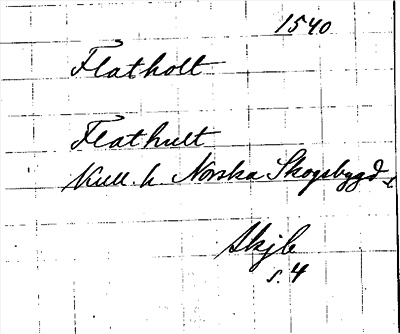 1540
Flatholt
Flathult
Kull. h. Norska Skogsbygd
Skjb
s. 4